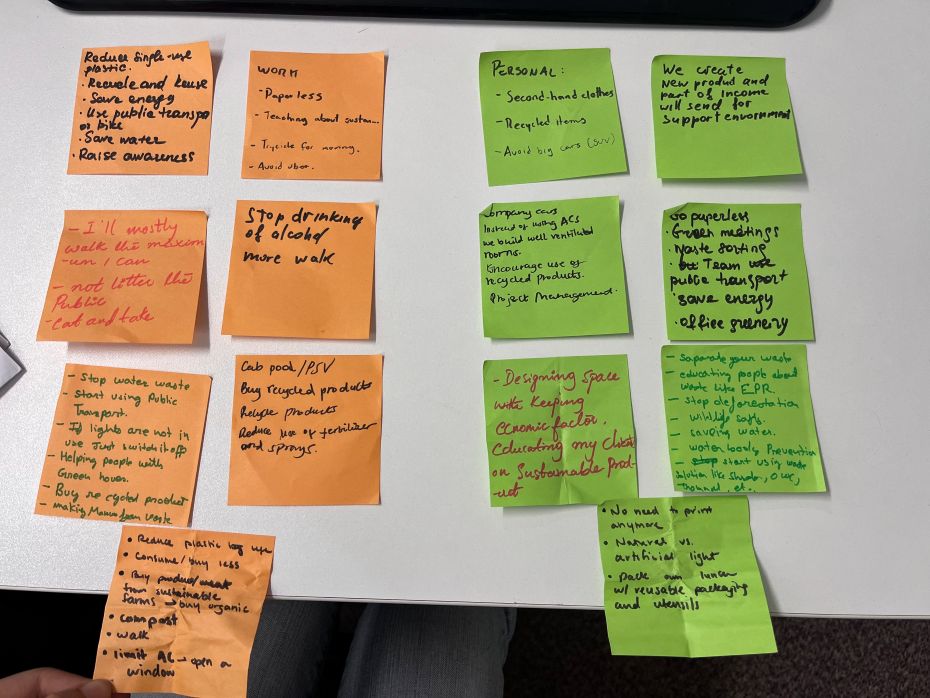 Reduce single-use
plastic.
• Recycle and Reuse
• Save energy
• Use public transpo
or bike
• Save water
• Raise awareness
WORK
- Paperless
- Teaching about sustain...
- Tricycle for moving.
- Avoid uber.
- I'll mostly
walk the maxim
-um I can
- not litter the
Public
- Eat and take
Stop drinking
of alcohol
more walk
- Stop water waste
- Start using Public
Transport.
- If lights are not in
use Just switch it off
- Helping people with
Green
- Buy recycled product
- making from waste
Cab pool/PSV
Buy recycled products
Recycle products
Reduce use of fertilizer
and sprays.
• Reduce plastic bag use
• Consume/buy less
• Buy produce/meat
from sustainable
farms → buy organic
• compost
• walk
• limit AC → open a
window
PERSONAL:
- Second-hand clothes
- Recycled items
- Avoid big cars (SUV)
We create
new produd and
part of income
will send for
support envoronment
Company cars
Instead of using ACs
we build well ventilated
rooms.
Encourage use of
recycled products.
Project Management.
Go paperless
• Green meetings
• Waste sorting
• Team use
public transport
• save energy
• office greenery
- Designing space
with keeping
economic factor.
Educating my client
on Sustainable Prod-
uct
- Saparate your waste
- educating people about
waste like EPR.
- stop deforestation
- wildlife safty.
- saveing water.
- waterbody Prevention
- stop start using waste
solution like
etc..
• No need to print
anymore
• Natural vs.
artificial light
• Pack own lunch
w/ reusable packaging
and utensils